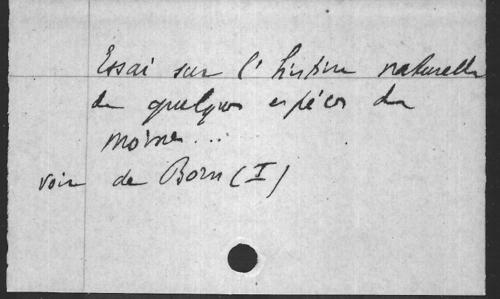 Essai sur l'histoire naturelle
de quelques espèces de
moines...
voir de Born (I)